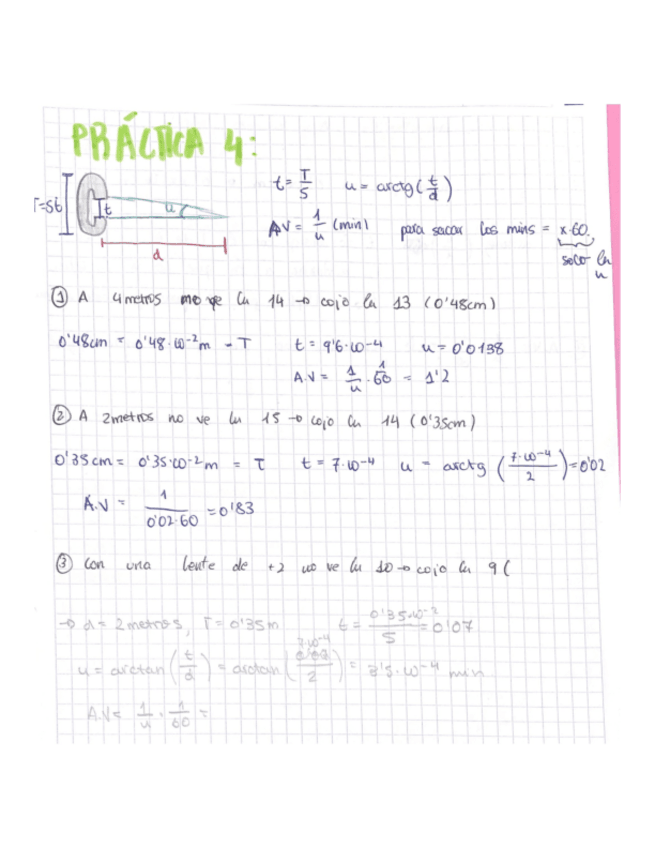 PRÁCTICA 4:
T=5t t u d
t = T/5 u = arctg(t/d)
AV = 1/u (min) para sacar los mins = x·60.
solo la u
① A 4 metros no ve la 14 → cojo la 13 (0'48cm)
0'48cm = 0'48·10⁻²m = T t = 9'6·10⁻⁴ u = 0'0138
A.V = 1/u · 1/60 = 1'2
② A 2 metros no ve la 15 → cojo la 14 (0'35cm)
0'35cm = 0'35·10⁻²m = T t = 7·10⁻⁴ u = arctg (7·10⁻⁴/2) = 0'02
A.V = 1/0'02·60 = 0'83
③ Con una lente de +2 no ve la 10 → cojo la 9 (
→ d = 2 metros, T = 0'35m t = 0'35·10⁻²/5 = 0'07
u = arctan(t/d) = arctan(7·10⁻⁴/2) = 3'5·10⁻⁴ min
A.V = 1/u · 1/60 =